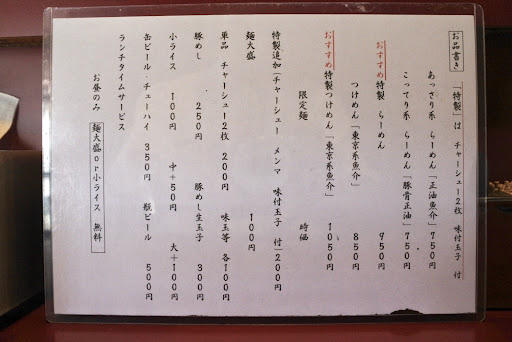 お品書き
「特製」は チャーシュー2枚 味付玉子 付
あっさり系 らーめん「正油魚介」750円
こってり系 らーめん「豚骨正油」750円
おすすめ 特製 らーめん 950円
つけめん「東京系魚介」 850円
おすすめ 特製つけめん「東京系魚介」 1050円
限定麺 時価
特製追加(チャーシュー メンマ 味付玉子 付)200円
麺大盛 100円
単品 チャーシュー2枚 200円 味玉等 各100円
豚めし 250円 豚めし生玉子 300円
小ライス 100円 中+50円 大+100円
缶ビール・チューハイ 350円 瓶ビール 500円
ランチタイムサービス
お昼のみ 麺大盛or小ライス 無料